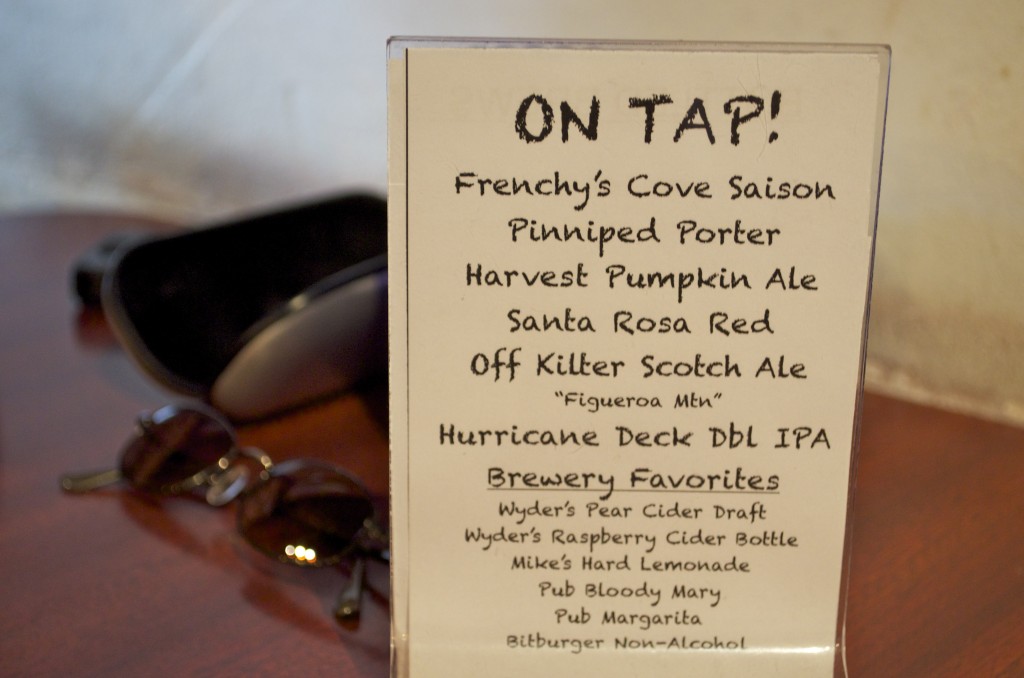 ON TAP!
Frenchy's Cove Saison
Pinniped Porter
Harvest Pumpkin Ale
Santa Rosa Red
Off Kilter Scotch Ale
"Figueroa Mtn"
Hurricane Deck Dbl IPA
Brewery Favorites
Wyder's Pear Cider Draft
Wyder's Raspberry Cider Bottle
Mike's Hard Lemonade
Pub Bloody Mary
Pub Margarita
Bitburger Non-Alcohol